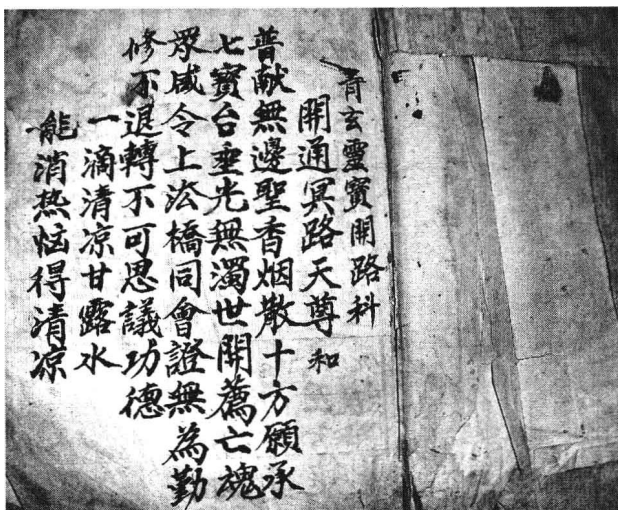 青玄靈寶開路科
開通冥路天尊 和
普献無邊聖香烟散十方願承
七寳台垂光無濁世開薦亡魂
眾咸令上汯橋同會證無為勤
修不退轉不可思議功德
一滴清凉甘露水
能消热恼得清凉